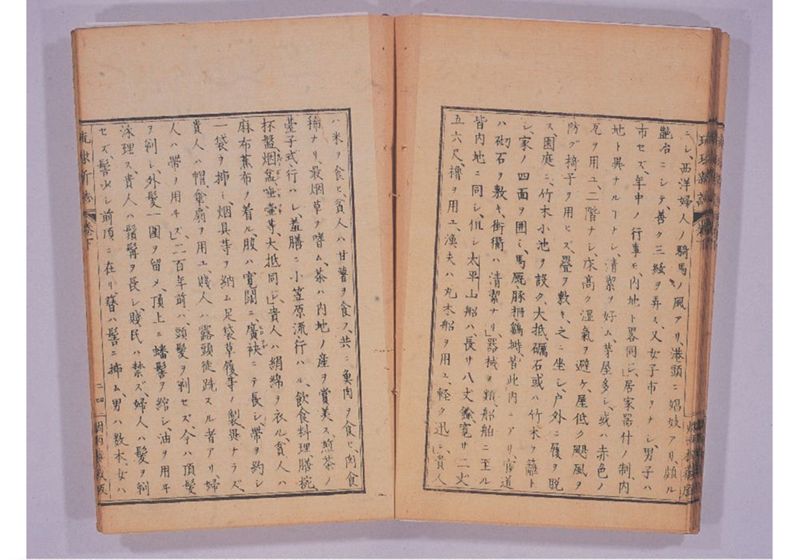 ニシ、西洋婦人ノ騎馬ノ風アリ、港頭ニ娼妓アリ、頗ル
艶冶ニシテ、善ク三絃ヲ弄ス、又女子市ヲナシ男子ハ
市セズ、年中ノ行事モ、内地ト畧同シ、居家器什ノ制、内
地ト異ナルナシ、清潔ヲ好ム茅屋多シ、或ハ赤色ノ
瓦ヲ用ユ、二階ナシ、床高ク湿氣ヲ避ケ、屋低ク颶風ヲ
防グ椅子ヲ用ヒズ、疊ヲ敷キ、之ニ坐シ、戸外ニ履ヲ脱
ス、園庭ニ、竹木小池ヲ設ク、大抵礪石或ハ竹木ヲ藩ト
シ、家ノ四面ヲ囲ミ、馬厩豚柵鶏塒、皆此内ニアリ、官道
ハ砌石ヲ敷キ、街衢ハ清潔ナリ、器械ノ類船舶ニ至ル
皆内地ニ同シ、但シ太平山船ハ長サ八丈餘寛サ二丈
五六尺、櫓ヲ用ユ、漁夫ハ丸木船ヲ用ユ、軽ク迅シ、貴人
ハ米ヲ食ヒ、貧人ハ甘薯ヲ食フ、共ニ魚肉ヲ食ヒ、肉食
稀ナリ、最烟草ヲ嗜ム、茶ハ内地ノ産ヲ賞美ス、煎茶ノ
臺子式行ハレ、盖膳ニ小笠原流行ハル、飲食料理膳椀
杯盤烟盆唾壷等、大抵同シ、貴人ハ絹綿ヲ衣ル、賓人ハ
麻布蕉布ノ着ル、股ハ寛闊ニ、廣袂ニテ長シ、帯ヲ約シ
一袋ヲ挿シ、烟具等ヲ納ム、足袋草履等ノ製異ナラズ、
貴人ハ帽傘扇ヲ用ユ、賎人ハ露頭徒跣スル者アリ、婦
人ハ帯ヲ用ヰズ、二百年前ハ頭髪ヲ剃セズ、今ハ頂髪
ヲ剃シ、外髪一圍ヲ留メ、頂上ニ蟠髻ヲ綰シ、油ヲ用ヰ
泳理ス、貴人ハ鬚髯ヲ長シ、賎民ハ禁ズ、婦人ハ髪ヲ剃
セズ、髻少シ前頂ニ在リ、簪ハ髻ニ挿ム、男ハ数本、女ハ
琉球新誌
巻下
二四